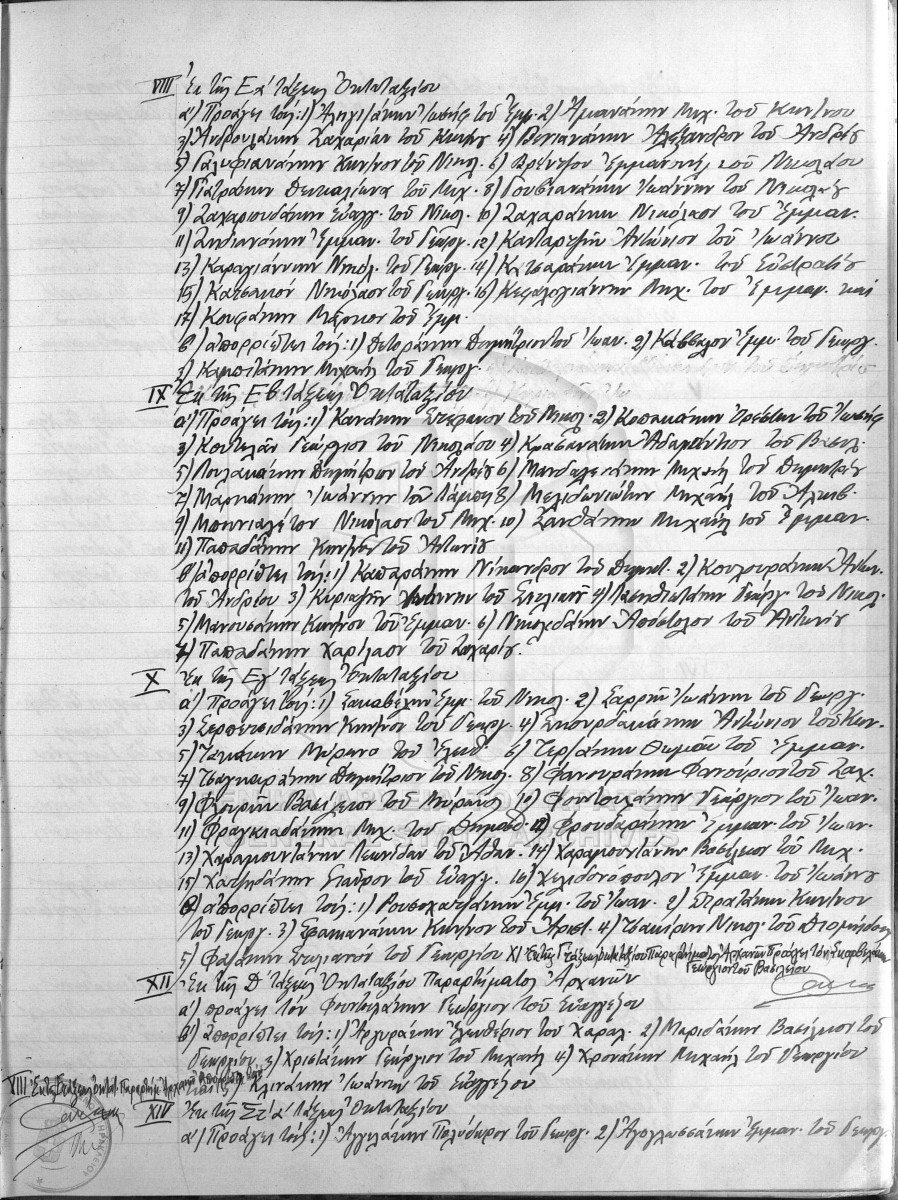 VIII Ἐκ τῆς Εα΄ τάξεως Ὀκταταξίου
α΄) Προάγει τούς: 1) Ἰωσήφ τοῦ Ἐμμ. 2) Ἀμιανάκην Μιχ. τοῦ Κων/νου
3) Ἀνδρουλάκην Ζαχαρίαν τοῦ Κων/νου 4) Βενιανάκην Ἀλέξανδρον τοῦ Ἀνδρέου
5) Γαλυφιανάκην Κων/νον τοῦ Νικολ. 6) Βρέντζον Ἐμμανουήλ τοῦ Νικολάου
7) Γιατράκην Δευκαλίωνα τοῦ Μιχ. 8) Γουβιανάκην Ἰωάννην τοῦ Νικολάου
9) Ζαχαριουδάκην Εὐάγγ. τοῦ Νικολ. 10) Ζαχαράκην Νικόλαον τοῦ Ἐμμαν.
11) Ζηδιανάκην Ἐμμαν. τοῦ Γεωργ. 12) Κανταρτζῆν Ἀντώνιον τοῦ Ἰωάννου
13) Καραγιάννην Νικόλ. τοῦ Γεωργ. 14) Κατσαράκην Ἐμμαν. τοῦ Εὐστρατίου
15) Κατσαλῆν Νικόλαον τοῦ Γεωργ. 16) Κεφαλογιάννην Μιχ. τοῦ Ἐμμαν. καί
17) Κουφάκην Μάρκον τοῦ Ἐμμ.
β΄) ἀπορρίπτει τούς: 1) Δετοράκην Δημήτριον τοῦ Ἰωαν. 2) Κάββαλον Ἐμμ. τοῦ Γεωργ.
3) Καμπιτάκην Μιχαήλ τοῦ Γεωργ.
IX Ἐκ τῆς Εβ τάξεως Ὀκταταξίου
α΄) Προάγει τούς: 1) Κανάκην Στέφανον τοῦ Νικολ. 2) Κοπακάκην Ὀρέστην τοῦ Ἰωσήφ
3) Κουτελᾶν Γεώργιον τοῦ Νικολάου 4) Κρασανάκην Ἀδαμάντιον τοῦ Βασιλ.
5) Λουλακάκην Δημήτριον τοῦ Ἀνδρέου 6) Μανδαλενάκην Μιχαήλ τοῦ Δημητρίου
7) Μαρκάκην Ἰωάννην τοῦ Λάμπη 8) Μελιδωνιώτην Μιχαήλ τοῦ Ἀλκιβ.
9) Μπουνιαλέτον Νικόλαον τοῦ Μιχ. 10) Ξανθάκην Μιχαήλ τοῦ Ἐμμαν.
11) Παπαδάκην Κων/νον τοῦ Ἀντωνίου
β΄) ἀπορρίπτει τούς: 1) Καπαράκην Νίκανδρον τοῦ Δημητ. 2) Κουλουράκην Ἀντων.
τοῦ Ἀνδρέου 3) Κυριαζῆν Ἰωάννην τοῦ Στυλιανοῦ 4) Γεώργ. τοῦ Νικολ.
5) Μανουσάκην Κων/νον τοῦ Ἐμμαν. 6) Νικολιδάκην Ἀπόστολον τοῦ Ἀντωνίου
7) Παπαδάκην Χαρίλαον τοῦ Ζαχαρίου.
X Ἐκ τῆς Εγ΄ τάξεως Ὀκταταξίου
α΄) Προάγει τούς: 1) Σακαβέλην Ἐμμ. τοῦ Νικολ. 2) Σαρρῆν Ἰωάννην τοῦ Γεωργ.
3) Σερπετσιδάκην Κων/νον τοῦ Γεωργ. 4) Σκουρδαμάκην Ἀντώνιον τοῦ Κων.
5) Τζικάκην Μύρωνα τοῦ Ἐλευθ. 6) Τερζάκην Θωμᾶν τοῦ Ἐμμαν.
7) Τσαγκαράκην Δημήτριον τοῦ Νικολ. 8) Φανουράκην Φανούριον τοῦ Ζαχ.
9) Φλουρῆν Βασίλειον τοῦ Μύρωνος 10) Φουντουλάκην Γεώργιον τοῦ Ἰωαν.
11) Φραγκιαδάκην Μιχ. τοῦ Δημοσθ. 12) Φρουδαράκην Ἐμμαν. τοῦ Ἰωαν.
13) Χαραμουντάνην Λεωνίδαν τοῦ Ἀθαν. 14) Χαραμουντάνην Βασίλειον τοῦ Μιχ.
15) Χατζηδάκην Σταῦρον τοῦ Εὐαγγ. 16) Χελιδονόπουλον Ἐμμαν. τοῦ Ἰωάννου
β) ἀπορρίπτει τούς: 1) Ρουσοχατζάκην Ἐμμ. τοῦ Ἰωαν. 2) Στρατάκην Κων/νον
τοῦ Γεωργ. 3) Σφακιανάκην Κων/νον τοῦ Ἀριστ. 4) Τζακίρην Νικολ. τοῦ Διομήδους
5) Φασάκην Στυλιανόν τοῦ Γεωργίου XI Ἐκ τῆς Γ τάξεως Ὀκταταξίου Παραρτήματος Ἀρχανῶν Προάγει τόν Σκαρβελάκην
Γεώργιον τοῦ Βασιλείου
XII Ἐκ τῆς Δ τάξεως Ὀκταταξίου Παραρτήματος Ἀρχανῶν
α΄) προάγει τόν Φουντουλάκην Γεώργιον τοῦ Εὐαγγέλου
β) ἀπορρίπτει τούς: 1) Ἀργυράκην Ἐλευθέριον τοῦ Χαραλ. 2) Μαριδάκην Βασίλειον τοῦ
Γεωργίου 3) Χριστάκην Γεώργιον τοῦ Μιχαήλ 4) Χρονάκην Μιχαήλ τοῦ Γεωργίου
VIII Ἐκ τῆς τάξεως Ὀκτατ. Παραρτήμ. Ἀρχανῶν Ἀπορρίπτει τόν
Κλινάκην Ἰωάννην τοῦ Εὐαγγέλου
XIV Ἐκ τῆς Στ΄α΄ τάξεως Ὀκταταξίου
α΄) Προάγει τούς: 1) Ἀγγελάκην Πολύδωρον τοῦ Γεωργ. 2) Ἀγογλωσσάκην Ἐμμαν. τοῦ Γεωργ.